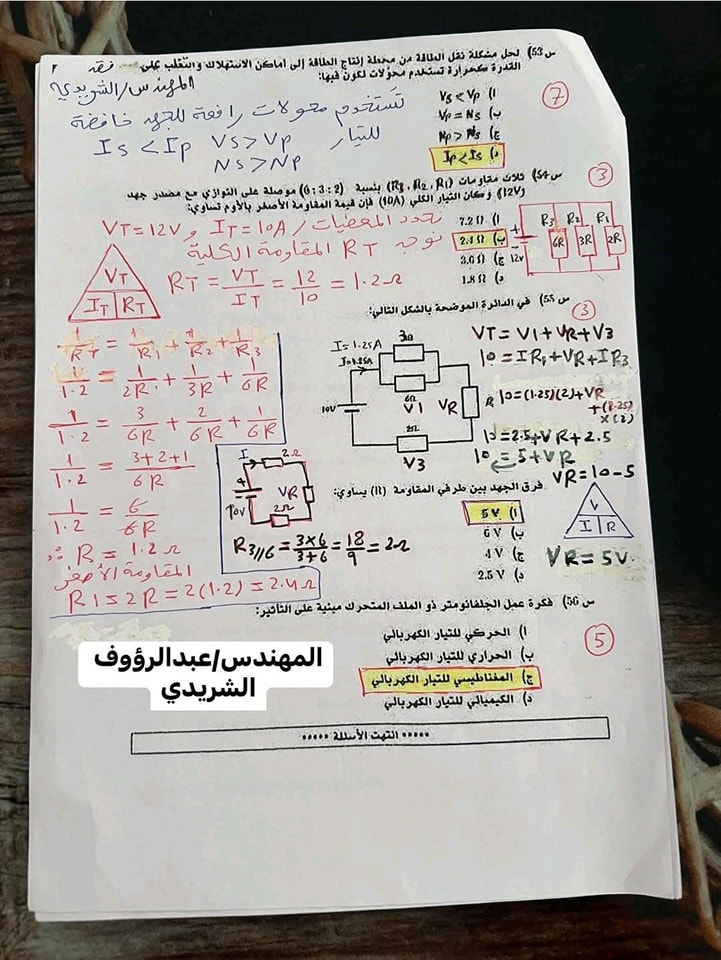 س53) لحل مشكلة نقل الطاقة من محطة إنتاج الطاقة إلى اماكن الاستهلاك والتغلب على فقد
القدرة كحرارة تستخدم محولات تكون فيها:
المهندس/الشريدي
7
أ) Vs < Vp
ب) Vp = Ns
ج) Np > Ns
د) Ip < Is
تستخدم محولات رافعة للجهد خافضة
للتيار Is < Ip Vs > Vp
Ns > Np
3
س54) ثلاث مقاومات (R3, R2, R1) بنسبة (2 : 3 : 6) موصلة على التوازي مع مصدر جهد
(12V) وكان التيار الكلي (10A) فإن قيمة المقاومة الأصغر بالأوم تساوي:
أ) 7.2 Ω
ب) 2.4 Ω
ج) 3.6 Ω
د) 1.8 Ω
R3 R2 R1
6R 3R 2R
+
-
12v
نحدد المعطيات / IT = 10A و VT = 12V
نوجد RT المقاومة الكلية
VT
IT RT
RT = VT/IT = 12/10 = 1.2 Ω
1/RT = 1/R1 + 1/R2 + 1/R3
1/1.2 = 1/2R + 1/3R + 1/6R
1/1.2 = 3/6R + 2/6R + 1/6R
1/1.2 = 3+2+1/6R
1/1.2 = 6/6R
∴ R = 1.2 Ω
المقاومة الأصغر
R1 = 2R = 2(1.2) = 2.4 Ω
س55) في الدائرة الموضحة بالشكل التالي:
3
I = 1.25A
I=1.25A
3Ω
6Ω
V1
10V
VR
R
2Ω
V3
VT = V1 + VR + V3
10 = IR1 + VR + IR3
10 = (1.25)(2) + VR
+ (1.25)
x(2)
10 = 2.5 + VR + 2.5
10 = 5 + VR
VR = 10 - 5
V
I R
VR = 5V
I
2Ω
VR
10V
2Ω
R3//6 = 3x6/3+6 = 18/9 = 2Ω
فرق الجهد بين طرفي المقاومة (R) يساوي:
أ) 5 V
ب) 6 V
ج) 4 V
د) 2.5 V
س56) فكرة عمل الجلفانومتر ذو الملف المتحرك مبنية على التأثير:
5
أ) الحركي للتيار الكهربائي
ب) الحراري للتيار الكهربائي
ج) المغناطيسي للتيار الكهربائي
د) الكيميائي للتيار الكهربائي
المهندس/عبدالرؤوف
الشريدي
••••• انتهت الأسئلة •••••